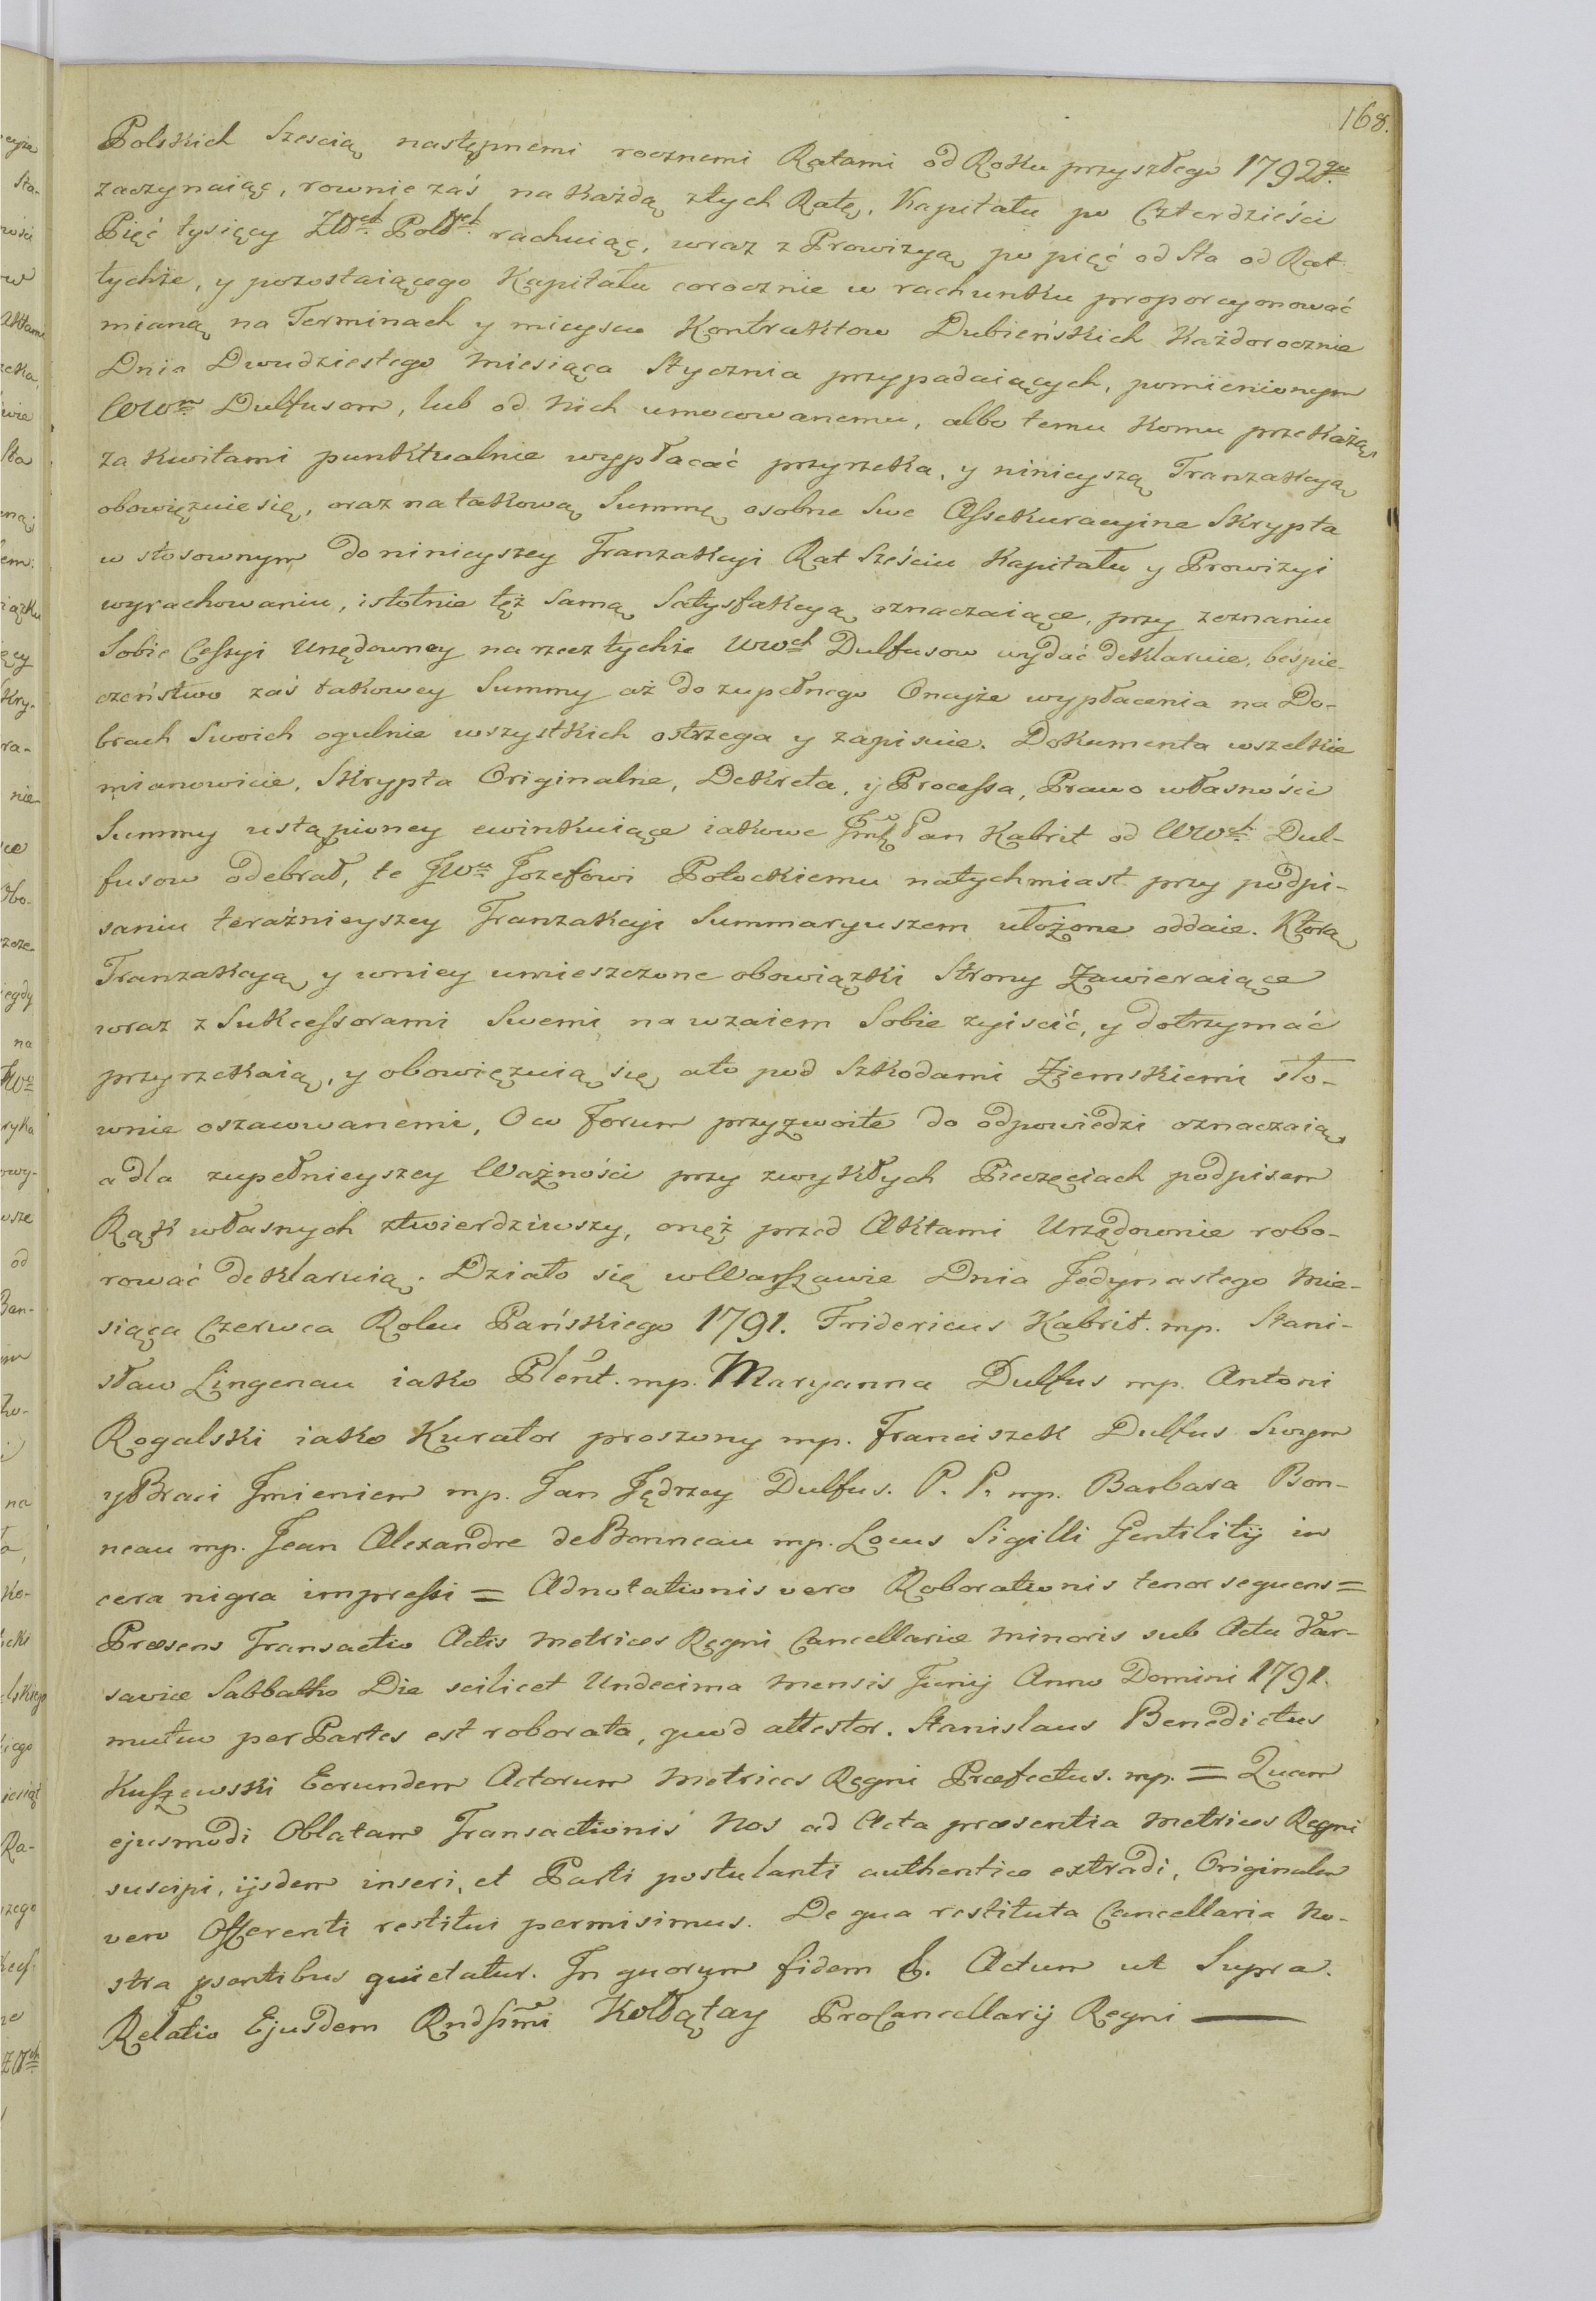 168.
Polskich Szescią następnemi rocznemi Ratami od Roku przyszłego 1792go
zaczynaiąc, rownie zaś na każdą ztych Ratę, Kapitału po Czterdzieści
Pięć tysięcy Złłch Polłch rachuiąc, wraz z Prowizyą po pięć od Sta od Rat
tychże, y pozostaiącego Kapitału corocznie w rachunku proporcyonować
mianą na Terminach y mieyscu Kontraktow Dubieńskich Każdorocznie
Dnia Dwudziestego Miesiąca Stycznia przypadaiących, pomienionym
WWm Dulfusom, lub od Nich umocowanemu, albo temu Komu przekażą,
za kwitami punktualnie wypłacać przyrzeka, y ninieyszą Tranzakcyą
obowięzuie się, oraz na takową Summę osobne Swe Assekuracyine Skrypta
w stosownym do ninieyszey Tranzakcyi Rat Sześciu Kapitału y Prowizyi
wyrachowaniu, istotnie tęż samą Satysfakcyą oznaczaiące, przy zeznaniu
Sobie Cessyi Urzędowney na rzecz tychże WWch Dulfusow wydać deklaruie, bespie-
czeństwo zaś takowey Summy aż do zupełnego Oneyże wypłacenia na Do-
brach Swoich ogulnie wszystkich ostrzega y zapisuie. Dokumenta wszelkie
mianowicie, Skrypta Originalne, Dekreta, y Processa, Prawo własności
Summy ustąpioney ewinkuiące iakowe Jmć Pan Kabrit od WWch Dul-
fusow odebrał, te JWu Jozefowi Potockiemu natychmiast przy podpi-
saniu teraźnieyszey Tranzakcyi Summaryuszem ułożone oddaie. Ktorą
Tranzakcyą y wniey umieszczone obowiązki Strony Zawieraiące
wraz z Sukcessorami Swemi na wzaiem Sobie zyiscić, y dotrzymać
przyrzekaią, y obowięzuią się ato pod Szkodami Ziemskiemi sło-
wnie oszacowanemi, O co forum przyzwoite do odpowiedzi oznaczaią
a dla zupełnieyszey Ważności przy zwykłych Pieczęciach podpisem
Rąk własnych ztwierdziwszy, onęż przed Aktami Urzędownie robo-
rować deklaruią. Działo się w Warszawie Dnia Jedynastego Mie-
siąca Czerwca Roku Pańskiego 1791. Fridericus Kabrit. mp. Stani-
sław Lingenau iako Plent. mp. Maryanna Dulfus mp. Antoni
Rogalski iako Kurator proszony mp. Franciszek Dulfus Swym
y Braci Jmieniem mp. Jan Jędrzey Dulfus. P. P. mp. Barbara Bon-
neau mp. Jean Alexandre de Bonneau mp. Locus Sigilli Gentilitij in
cera nigra impressi = Adnotationis vero Roborationis tenor sequens =
Præsens Transactio Actis Metrices Regni Cancellariæ Minoris sub Actu Var-
saviæ Sabbatho Die scilicet Undecima Mensis Junij Anno Domini 1791.
mutuo per Partes est roborata, quod attestor. Stanislaus Benedictus
Kuszewski Eorundem Actorum Metrices Regni Præfectus. mp. = Quam
ejusmodi Oblatam Transactionis Nos ad Acta præsentia Metrices Regni
suscipi, ijsdem inseri, et Parti postulanti authentice extradi, Originale
vero Offerenti restitui permisimus. De qua restituta Cancellaria No-
stra psentibus quietatur. In quorum fidem &. Actum ut Supra.
Relatio Ejusdem Rndssimi Kołłątay ProCancellarij Regni